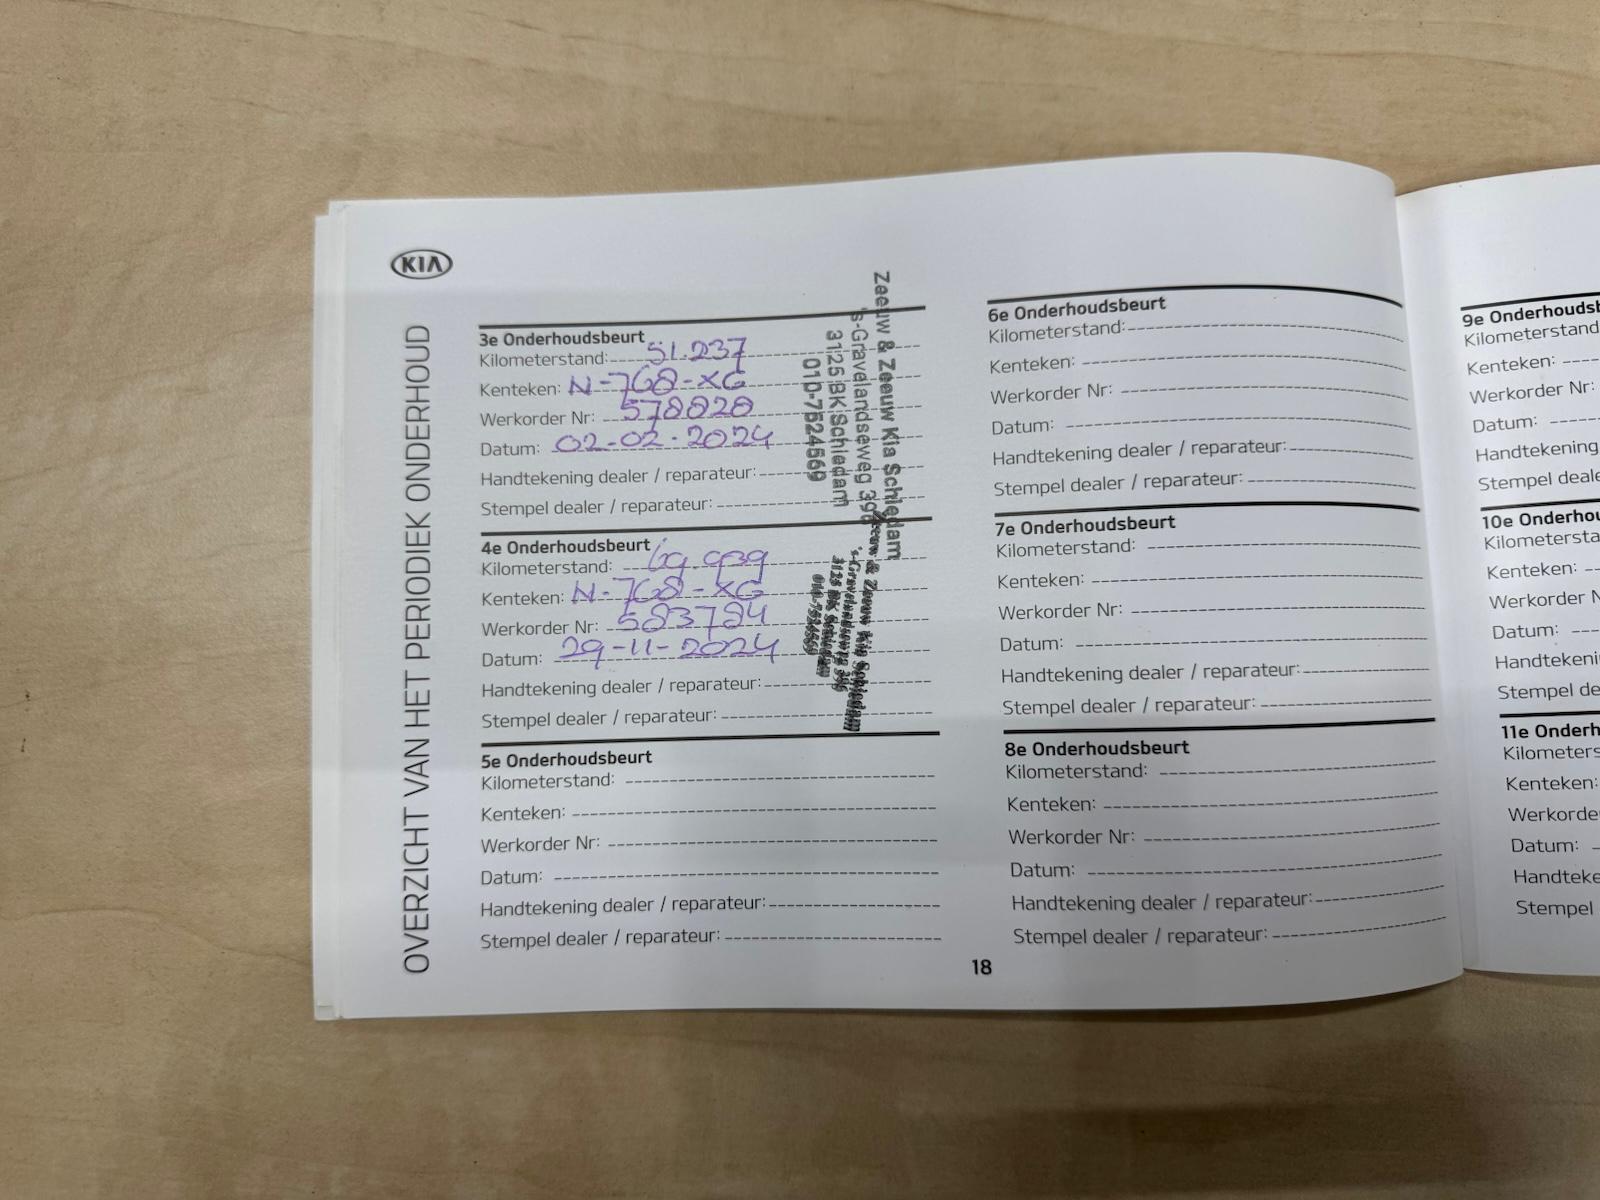 KIA
OVERZICHT VAN HET PERIODIEK ONDERHOUD
3e Onderhoudsbeurt
Kilometerstand: 51.237
Kenteken: N-768-XG
Werkorder Nr: 578828
Datum: 02-02-2024
Handtekening dealer / reparateur:
Stempel dealer / reparateur:
Zeeuw & Zeeuw Kia Schiedam
's-Gravelandseweg 396
3125 BK Schiedam
010-7524569
4e Onderhoudsbeurt
Kilometerstand:
Kenteken: N-768-XG
Werkorder Nr: 583784
Datum: 29-11-2024
Handtekening dealer / reparateur:
Stempel dealer / reparateur:
Zeeuw & Zeeuw Kia Schiedam
's-Gravelandseweg 396
3125 BK Schiedam
010-7524569
5e Onderhoudsbeurt
Kilometerstand:
Kenteken:
Werkorder Nr:
Datum:
Handtekening dealer / reparateur:
Stempel dealer / reparateur:
6e Onderhoudsbeurt
Kilometerstand:
Kenteken:
Werkorder Nr:
Datum:
Handtekening dealer / reparateur:
Stempel dealer / reparateur:
7e Onderhoudsbeurt
Kilometerstand:
Kenteken:
Werkorder Nr:
Datum:
Handtekening dealer / reparateur:
Stempel dealer / reparateur:
8e Onderhoudsbeurt
Kilometerstand:
Kenteken:
Werkorder Nr:
Datum:
Handtekening dealer / reparateur:
Stempel dealer / reparateur:
18
9e Onderhoudsb
Kilometerstand
Kenteken:
Werkorder Nr:
Datum:
Handtekening
Stempel deale
10e Onderhou
Kilometersta
Kenteken:
Werkorder N
Datum:
Handtekeni
Stempel de
11e Onderh
Kilometers
Kenteken:
Werkorde
Datum:
Handteke
Stempel